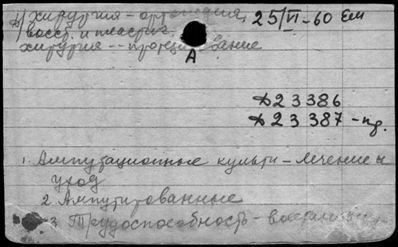 хирургия - ортопедия, 25/VI-60 Ем
восст. и пластич.
хирургия -- протезирование
А
Д23386
Д23387-пд.
1. Ампутационные культи - лечение и
уход
2. Ампутированные
3. Трудоспособность -